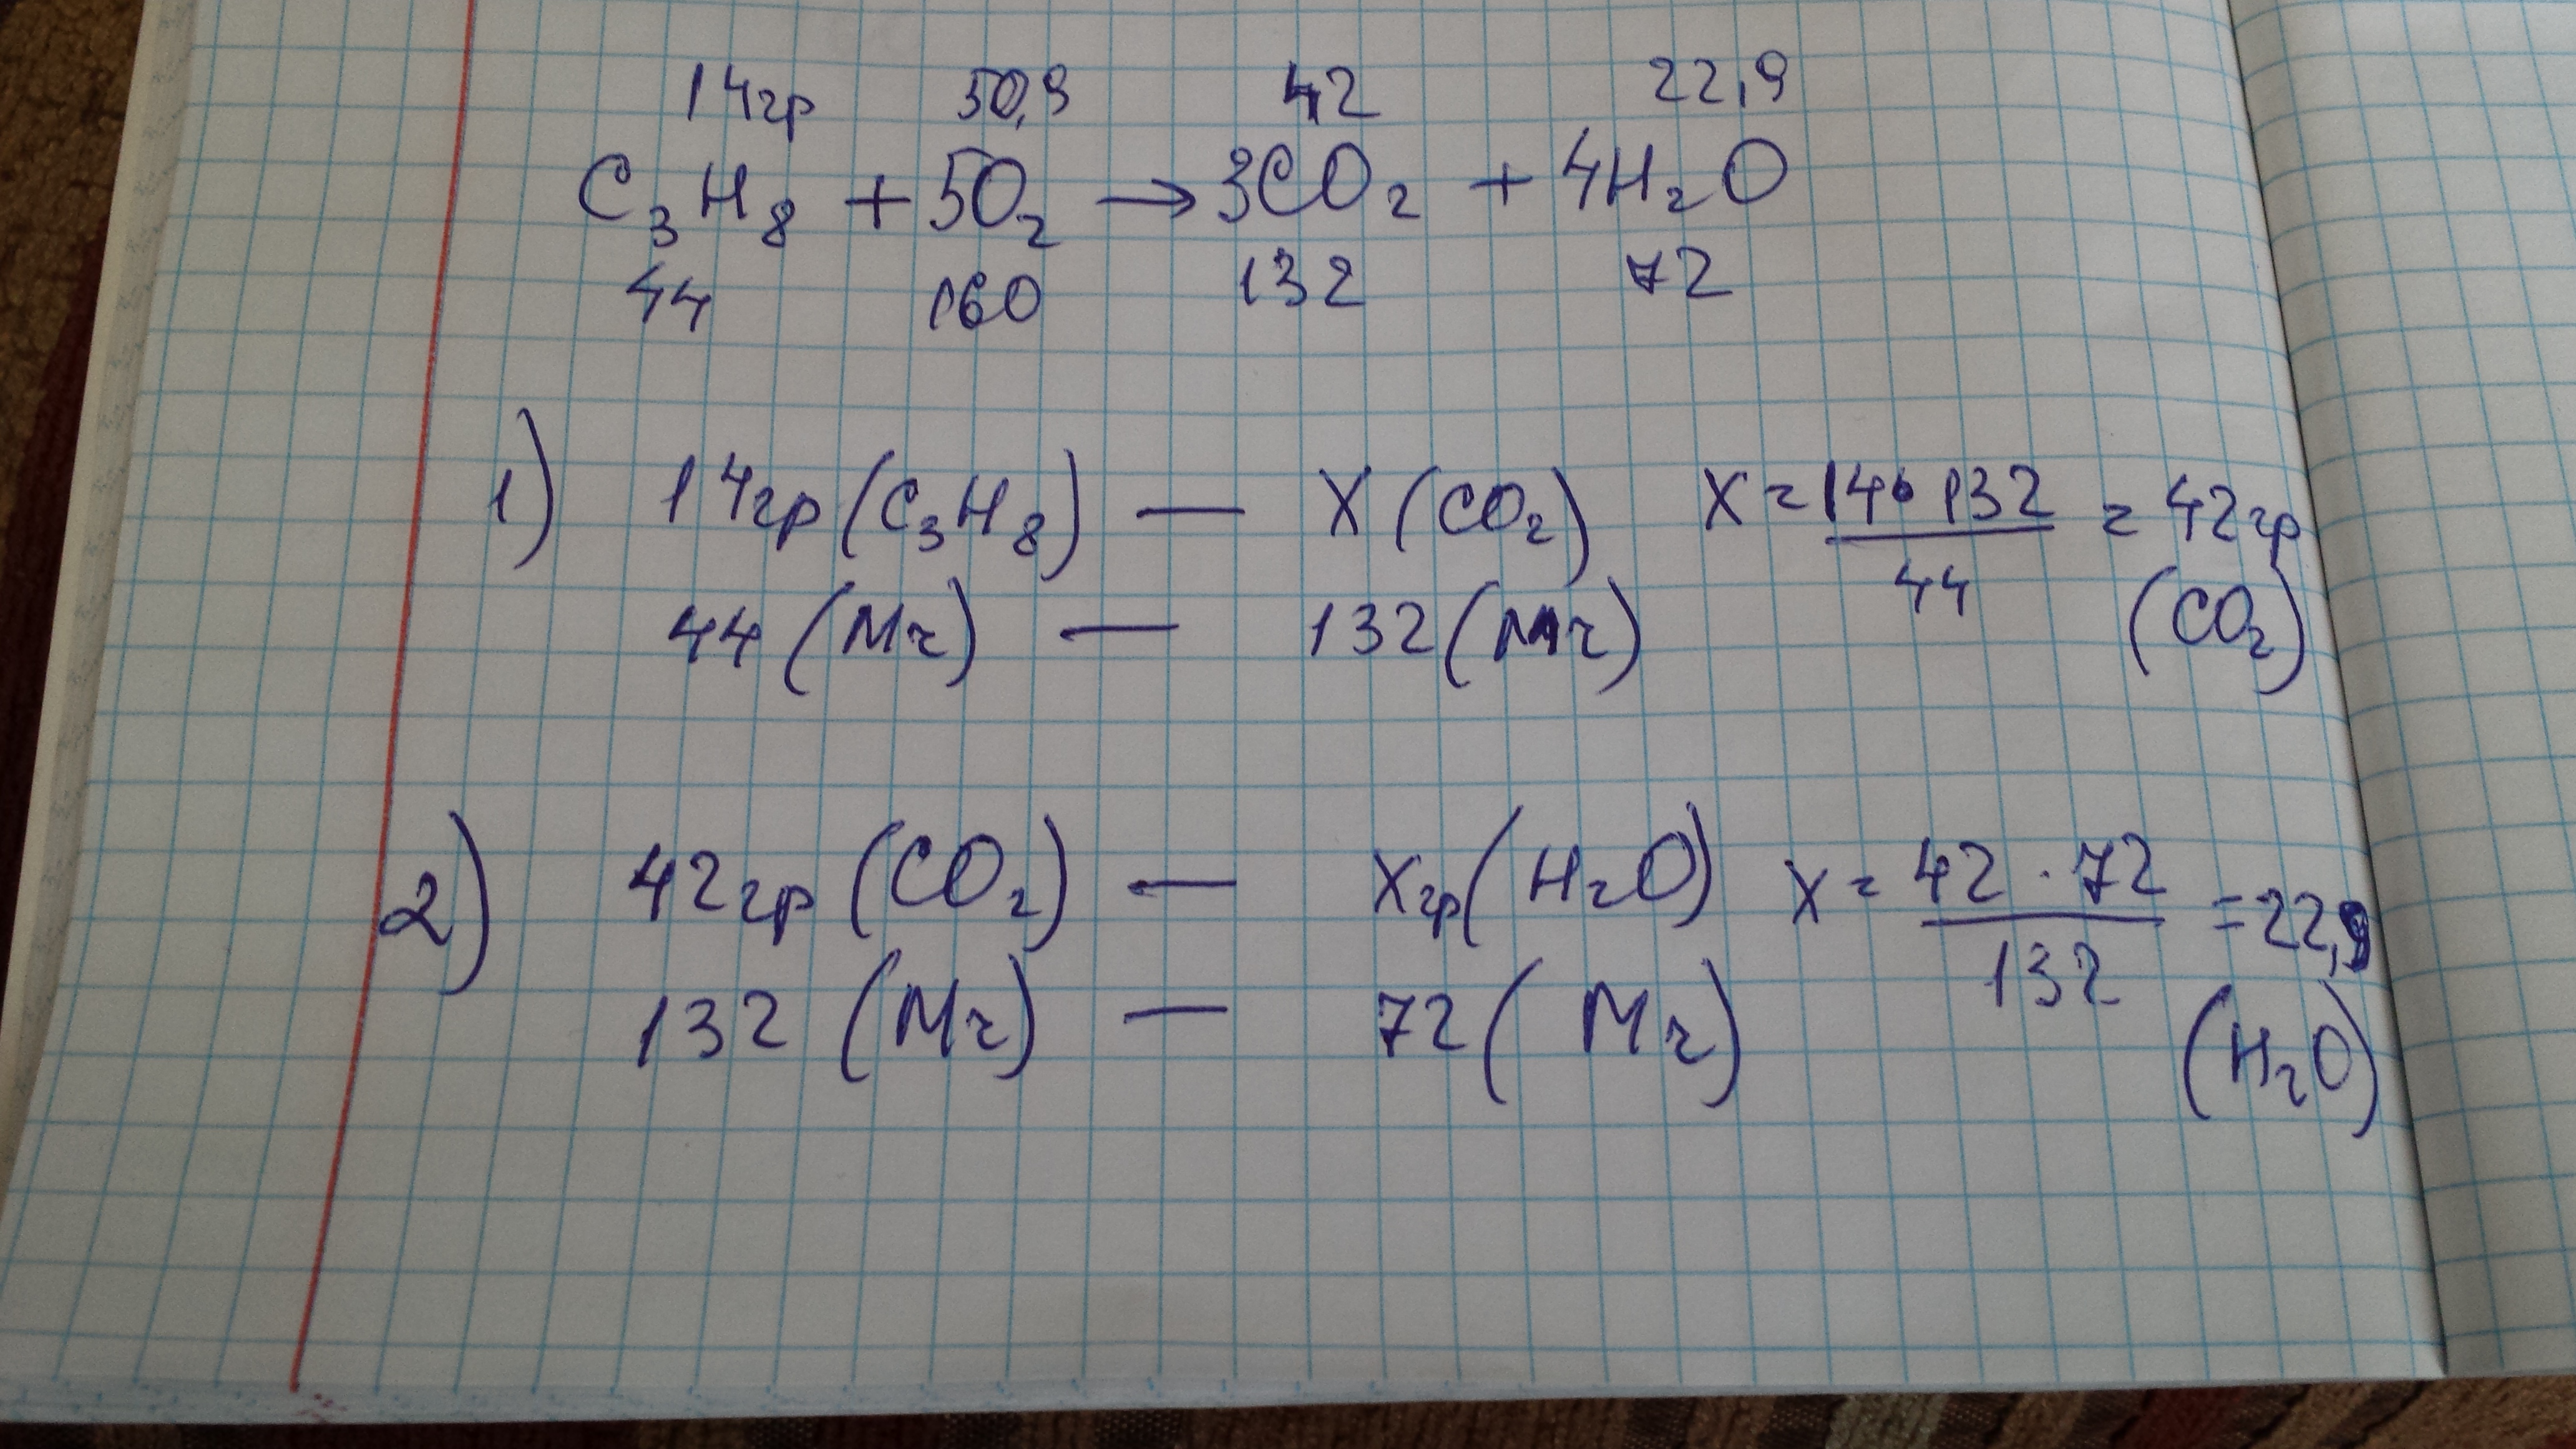 14гр 50,9 42 22,9
C₃H₈ + 5O₂ → 3CO₂ + 4H₂O
44 160 132 72
1) 14гр (C₃H₈) — X (CO₂) X = 14 · 132 = 42гр
44
44 (Mr) — 132 (Mr) (CO₂)
2) 42гр (CO₂) — Xгр (H₂O) X = 42 · 72 = 22,9
132
132 (Mr) — 72 (Mr) (H₂O)